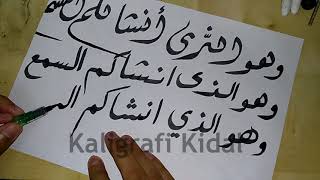 وهو الذى أنشا لكم
وهو الذى انشاكم السمع
وهو الذي انشاكم
Kaligrafi Kidal